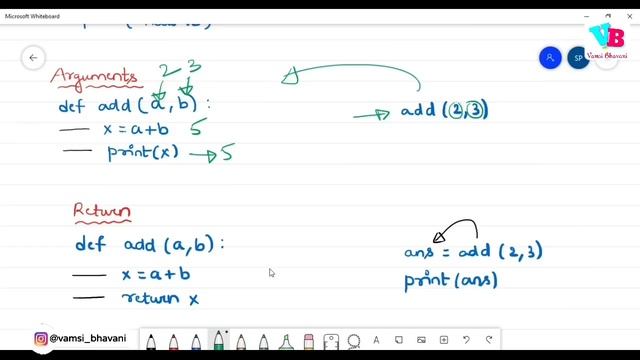 Microsoft Whiteboard
VB
Vamsi Bhavani
SP
Arguments
2 3
def add (a, b) :
x = a+b 5
print(x) → 5
→ add (2,3)
Return
def add (a,b) :
x = a+b
return x
ans = add (2,3)
print (ans)
@vamsi_bhavani